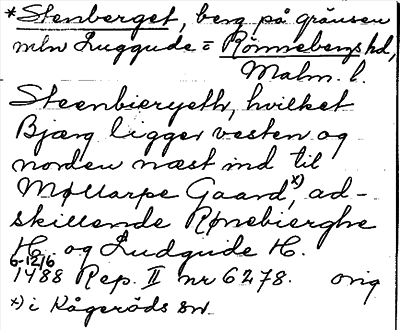 *Stenberget, berg på gränsen
mln Luggude = Rönnebergs hd,
Malm. l.
Steenbieryeth, hvilket
Bjærg ligger vesten og
norden næst ind til
Møllarpe Gaard,x) ad-
skillende Rønebierghe
H. og Ludgude H.
6-12/6
1488 Rep. II nr 6278. orig
x) i Kågeröds sn.